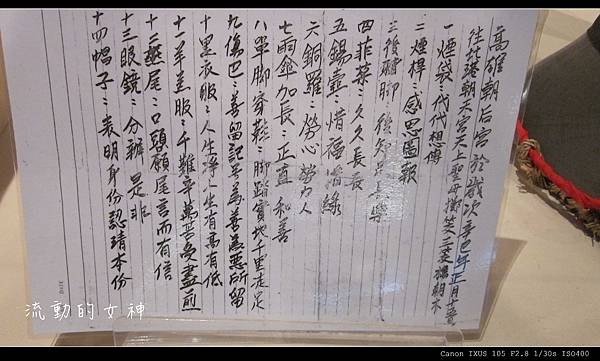 高雄朝后宮於歲次辛巳年正月十
往北港朝天宮天上聖母擲笑三
一煙袋：代代想傳
二煙桿：感恩圖報
三後腳：後知足長樂
四韮菜：久久長長
五錫壺：惜福惜緣
六銅羅：勞心勞力人
七雨傘加長：正直和善
八單腳穿鞋：腳踏實地千里徒足
九傷巴：善留記号為善為惡所留
十黑衣服：人生海人生有高有低
十一羊羔服：千難辛萬苦受盡煎
十二尾：口頭願尾言而有信
十三眼鏡：分辦是非
十四帽子：表明身份認清本份
流動的女神
Canon IXUS 105 F2.8 1/30s ISO400